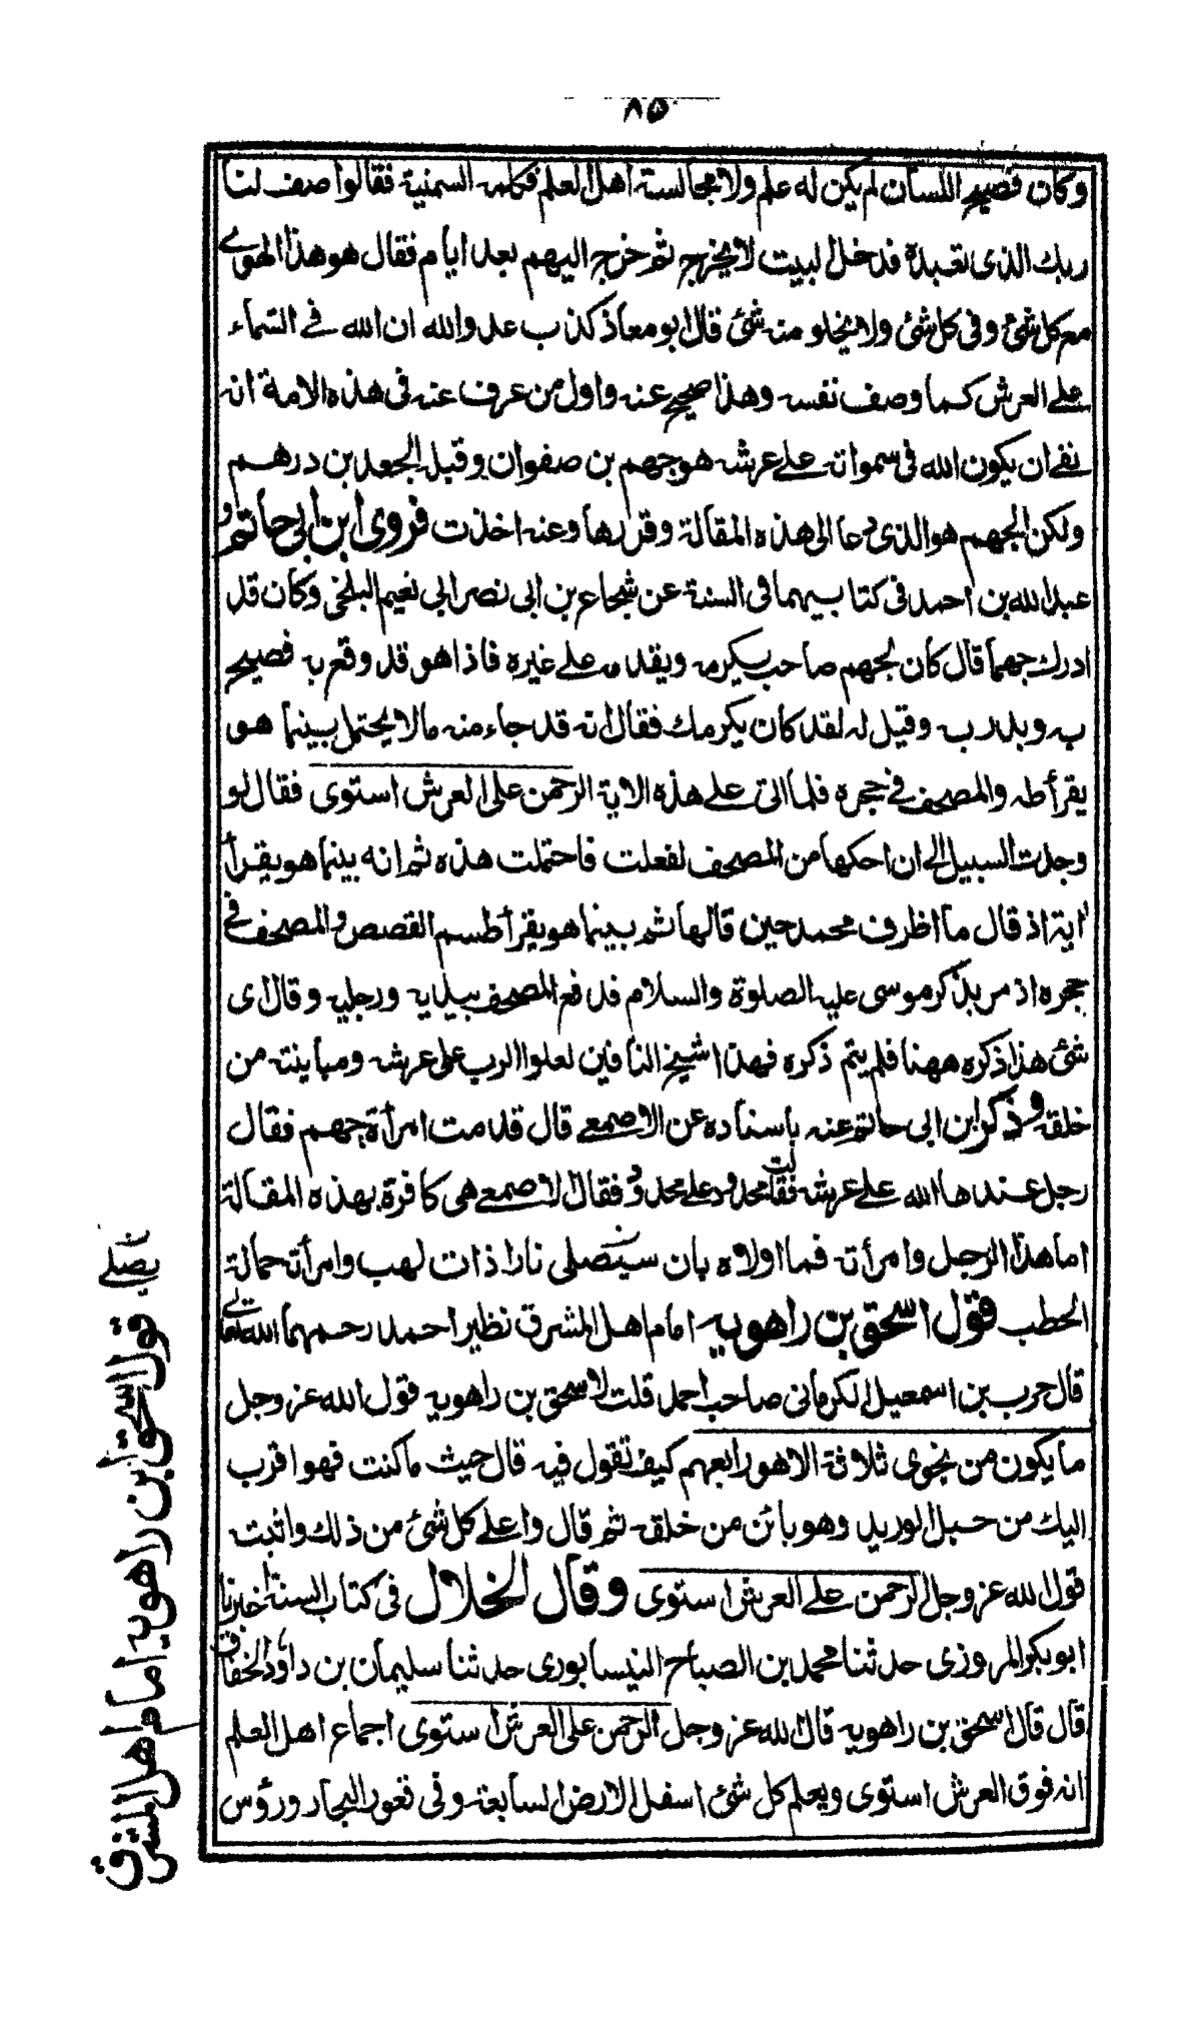 ٨٥
وكان فصيح اللسان لم يكن له علم ولا مجالسة اهل العلم فكلمه السمنية فقالوا صف لنا
ربك الذى تعبده فدخل البيت لا يخرج ثم خرج اليهم بعد ايام فقال هو هذا الهوى
مع كل شئ وفى كل شئ ولا يخلو منه شئ قال ابو معاذ كذب عدو الله ان الله فى السماء
على العرش كما وصف نفسه وهذا صحيح عنه واول من عرف عنه فى هذه الامة انه
نفى ان يكون الله فى سمواته على عرشه هو جهم بن صفوان وقيل الجعد بن درهم
ولكن الجهم هو الذى دعا الى هذه المقالة وقررها وعنه اخذت فروى ابن ابى حاتم و
عبد الله بن احمد فى كتابيهما فى السنة عن شجاع بن ابى نصر ابى نعيم البلخى وكان قد
ادرك جهما قال كان لجهم صاحب يكرمه ويقدمه على غيره فاذا هو قد وقع به فصيح
به وبدر به وقيل له لقد كان يكرمك فقال انه قد جاء منه مالا يحتمل بينما هو
يقرأ طه والمصحف فى حجره فلما اتى على هذه الاية الرحمن على العرش استوى فقال لو
وجدت السبيل الى ان احكها من المصحف لفعلت فاحتملت هذه ثم انه بينما هو يقرأ
اية اذ قال ما اظرف محمد حين قالها ثم بينما هو يقرأ طسم القصص والمصحف فى
حجره اذ مر بذكر موسى عليه الصلوة والسلام فدفع المصحف بيديه ورجليه وقال اى
شئ هذا ذكره ههنا فلم يتم ذكره فهذا شيخ النافين لعلو الرب على عرشه ومباينته من
خلقه وذكر ابن ابى حاتم عنه باسناده عن الاصمعى قال قدمت امرأة جهم فقال
رجل عندها الله على عرشه فقالت محدود على محدود فقال الاصمعى هى كافرة بهذه المقالة
اما هذا الرجل وامرأته فما اولاه بان سيصلى نارا ذات لهب وامرأته حمالة
الحطب قول اسحق بن راهويه امام اهل المشرق نظير احمد رحمهما الله تعالى
قال حرب بن اسمعيل الكرمانى صاحب احمد قلت لاسحق بن راهويه قول الله عز وجل
ما يكون من نجوى ثلاثة الا هو رابعهم كيف تقول فيه قال حيث ما كنت فهو اقرب
اليك من حبل الوريد وهو بائن من خلقه ثم قال واعلى كل شئ من ذلك واثبت
قول الله عز وجل الرحمن على العرش استوى وقال الخلال فى كتاب السنة اخبرنا
ابو بكر المروزى حدثنا محمد بن الصباح النيسابورى حدثنا سليمان بن داؤد الخفاف
قال قال اسحق بن راهويه قال الله عز وجل الرحمن على العرش استوى اجماع اهل العلم
انه فوق العرش استوى ويعلم كل شئ اسفل الارض السابعة وفى قعور البحار ورؤس
يصلى
قول اسحق ابن راهويه امام اهل المشرق